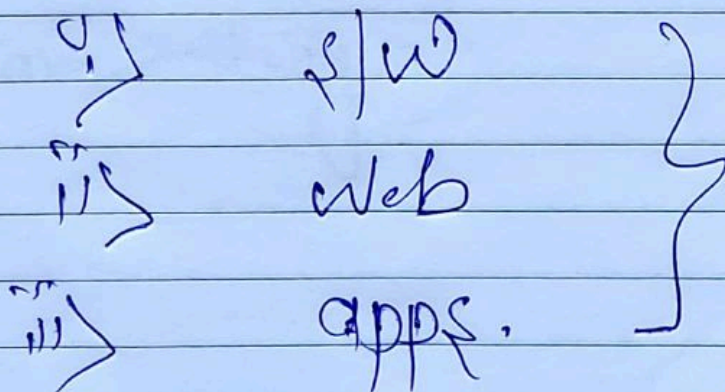 i> s/w
ii> Web
iii> apps.